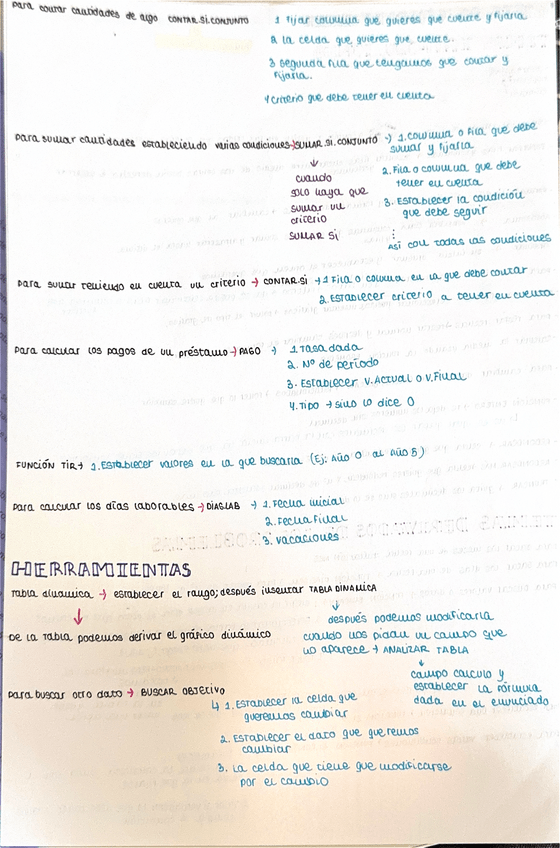 para contar cantidades de algo CONTAR.SI.CONJUNTO
1 Fijar columna que quieres que cuente y fijarla
2 la celda que quieres que cuente.
3 segunda fila que tengamos que contar y
fijarla.
4 criterio que debe tener en cuenta
para sumar cantidades estableciendo varias condiciones → SUMAR.SI.CONJUNTO → 1. columna o fila que debe
sumar y fijarla
2. Fila o columna que debe
tener en cuenta
3. Establecer la condición
que debe seguir
⋮
Así con todas las condiciones
↓
cuando
solo haya que
sumar un
criterio
SUMAR SI
para sumar teniendo en cuenta un criterio → CONTAR.SI → 1 Fila o columna en la que debe contar
2. Establecer criterio a tener en cuenta
para calcular los pagos de un préstamo → PAGO → 1. Tasa dada
2. Nº de período
3. Establecer V.Actual o V.Final
4. Tipo → sino lo dice 0
FUNCIÓN TIR → 1. Establecer valores en la que buscarla (Ej: Año 0 al Año 5)
para calcular los días laborables → DIAS.LAB → 1. Fecha inicial
2. Fecha Final
3. vacaciones
HERRAMIENTAS
Tabla dinámica → establecer el rango; después insertar TABLA DINAMICA
↓
De la Tabla podemos derivar el gráfico dinámico
↓
después podemos modificarla
cuando nos pidan un campo que
no aparece → ANALIZAR TABLA
↓
campo calculo y
establecer la fórmula
dada en el enunciado
para buscar otro dato → BUSCAR OBJETIVO
↳ 1. Establecer la celda que
queremos cambiar
2. Establecer el dato que queremos
cambiar
3. La celda que tiene que modificarse
por el cambio